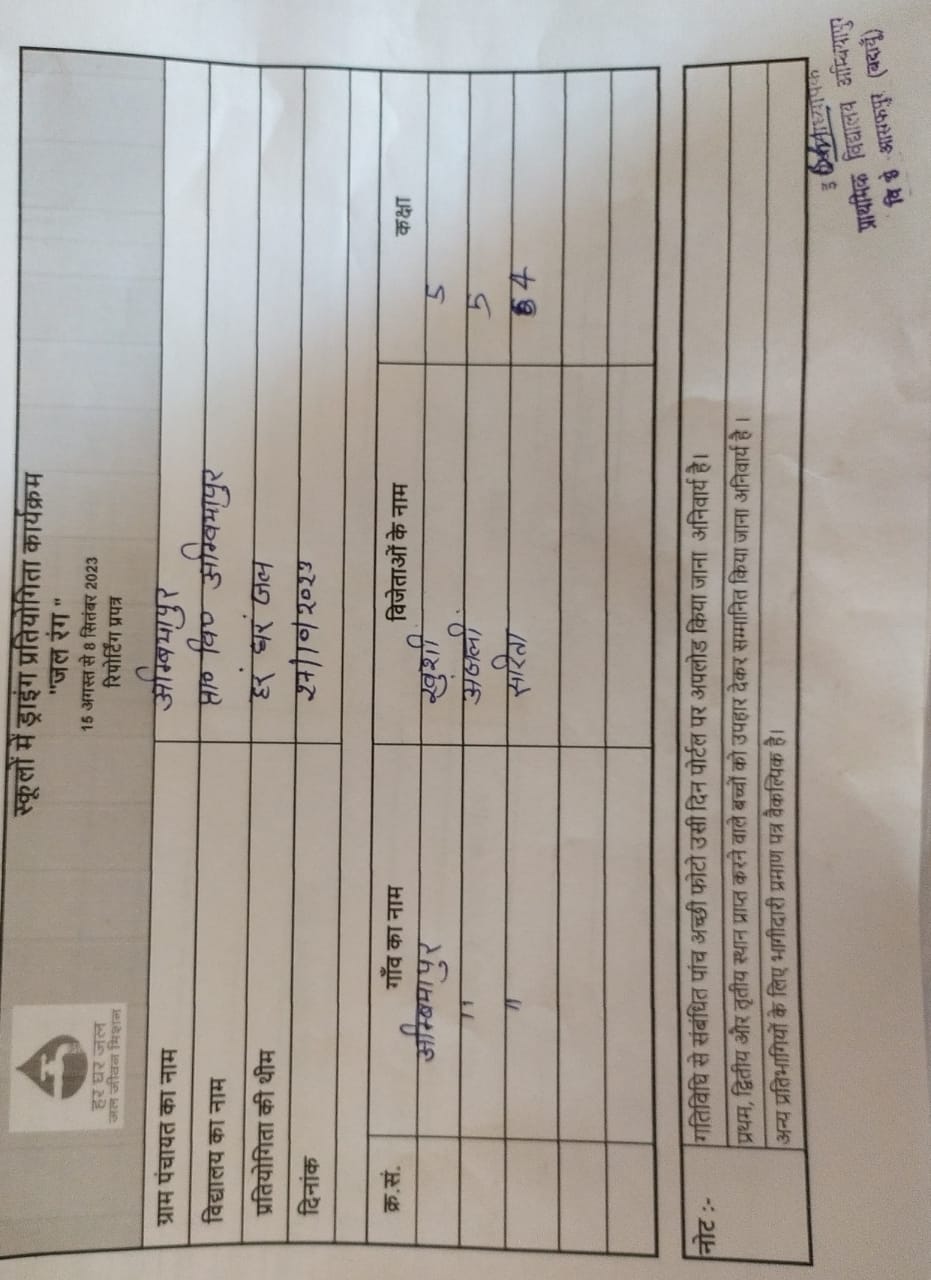 हर घर जल
जल जीवन मिशन
स्कूलों में ड्राइंग प्रतियोगिता कार्यक्रम
"जल रंग "
15 अगस्त से 8 सितंबर 2023
रिपोर्टिंग प्रपत्र
ग्राम पंचायत का नाम अम्बियापुर
विद्यालय का नाम प्रा० वि० अम्बियापुर
प्रतियोगिता की थीम हर घर जल
दिनांक
क्र.सं. गाँव का नाम विजेताओं के नाम कक्षा
अम्बियापुर खुशी 5
" अंजली 5
" सरिता 4
नोट :- गतिविधि से संबंधित पांच अच्छी फोटो उसी दिन पोर्टल पर अपलोड किया जाना अनिवार्य है।
प्रथम, द्वितीय और तृतीय स्थान प्राप्त करने वाले बच्चों को उपहार देकर सम्मानित किया जाना अनिवार्य है ।
अन्य प्रतिभागियों के लिए भागीदारी प्रमाण पत्र वैकल्पिक है।
प्राथमिक विद्यालय अम्बियापुर